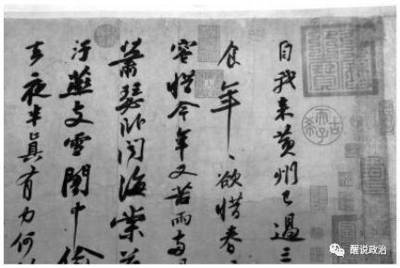 自我來黃州已過三
食年〻欲惜春
容惜今年又苦雨兩
蕭瑟卧聞海棠
汙燕支雪闇中偷
去夜半真有力何
醒说政治